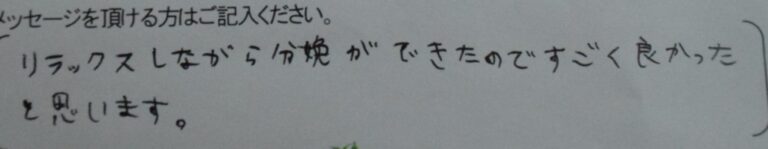 メッセージを頂ける方はご記入ください。
リラックスしながら分娩ができたのですごく良かった
と思います。